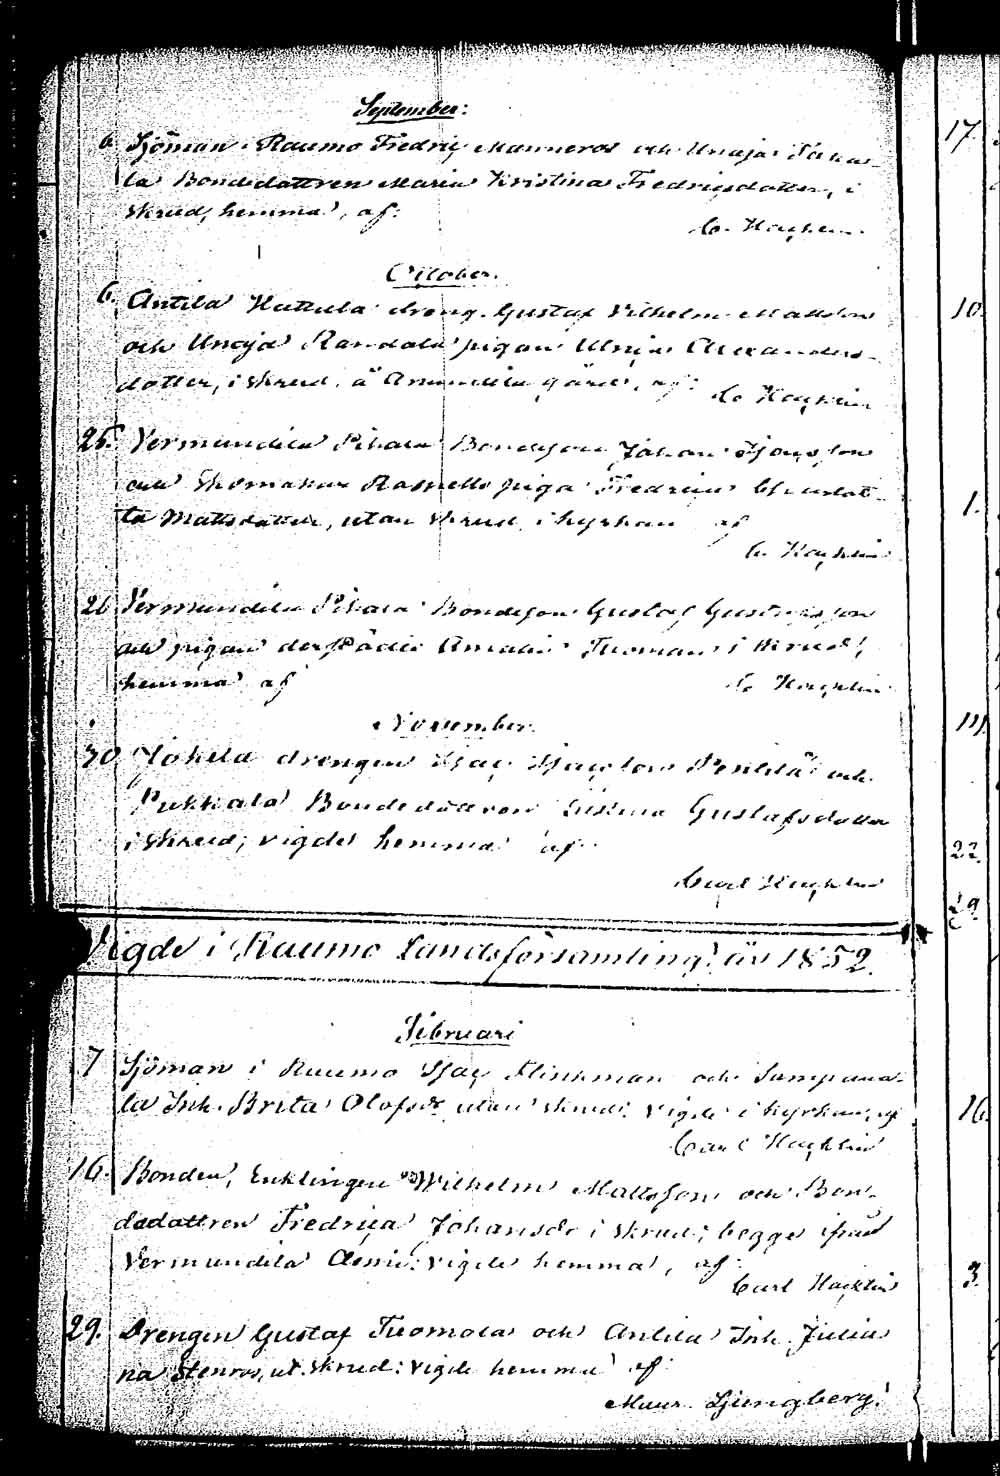 September:
6. Sjöman i Raumo Fredric Manneros och Unaja
la Bondedottren Maria Kristina Fredricsdotter, i
skrud, hemma, af:
C. Hacklin
October.
6. Antila Hattula dreng Gustaf Vilhelm Mattsson
och Unaja Randala pigan Ulrica Alexanders-
dotter, i skrud, å Anundila gård, af: C. Hacklin
25. Vermundila Pihala Bondeson Johan
och Skomakar piga Fredrica
ta Mattsdotter, utan skrud, i kyrkan af
C. Hacklin
26 Vermundila Pihala Bondeson Gustaf Gustafsson
och pigan Amalia Tuoman i skrud,
hemma af C. Hacklin
November.
30 Jokela drengen Isac Isacsson Penttilä och
Pukkala Bondedottren Gustafsdotter
i skrud; vigde hemma af
Carl Hacklin
Vigde i Raumo Landsförsamling år 1852.
Februari
7 Sjöman i Raumo Isac Flinkman och Sampaana-
la Inh. Brita Olofsdr utan skrud; vigde i kyrkan, af
Carl Hacklin
16. Bonden, Enklingen Wilhelm Mattsson och Bon-
dedottren Fredrica Johansdr i skrud; begge ifrån
Vermundila vigde hemma, af
Carl Hacklin
29. Drengen Gustaf Tuomola och Antila Inh. Julia
na Stenros, ut. skrud: vigde hemma af
Maur. Ljungberg.
17.
10.
1.
22.
29.
16.
3.